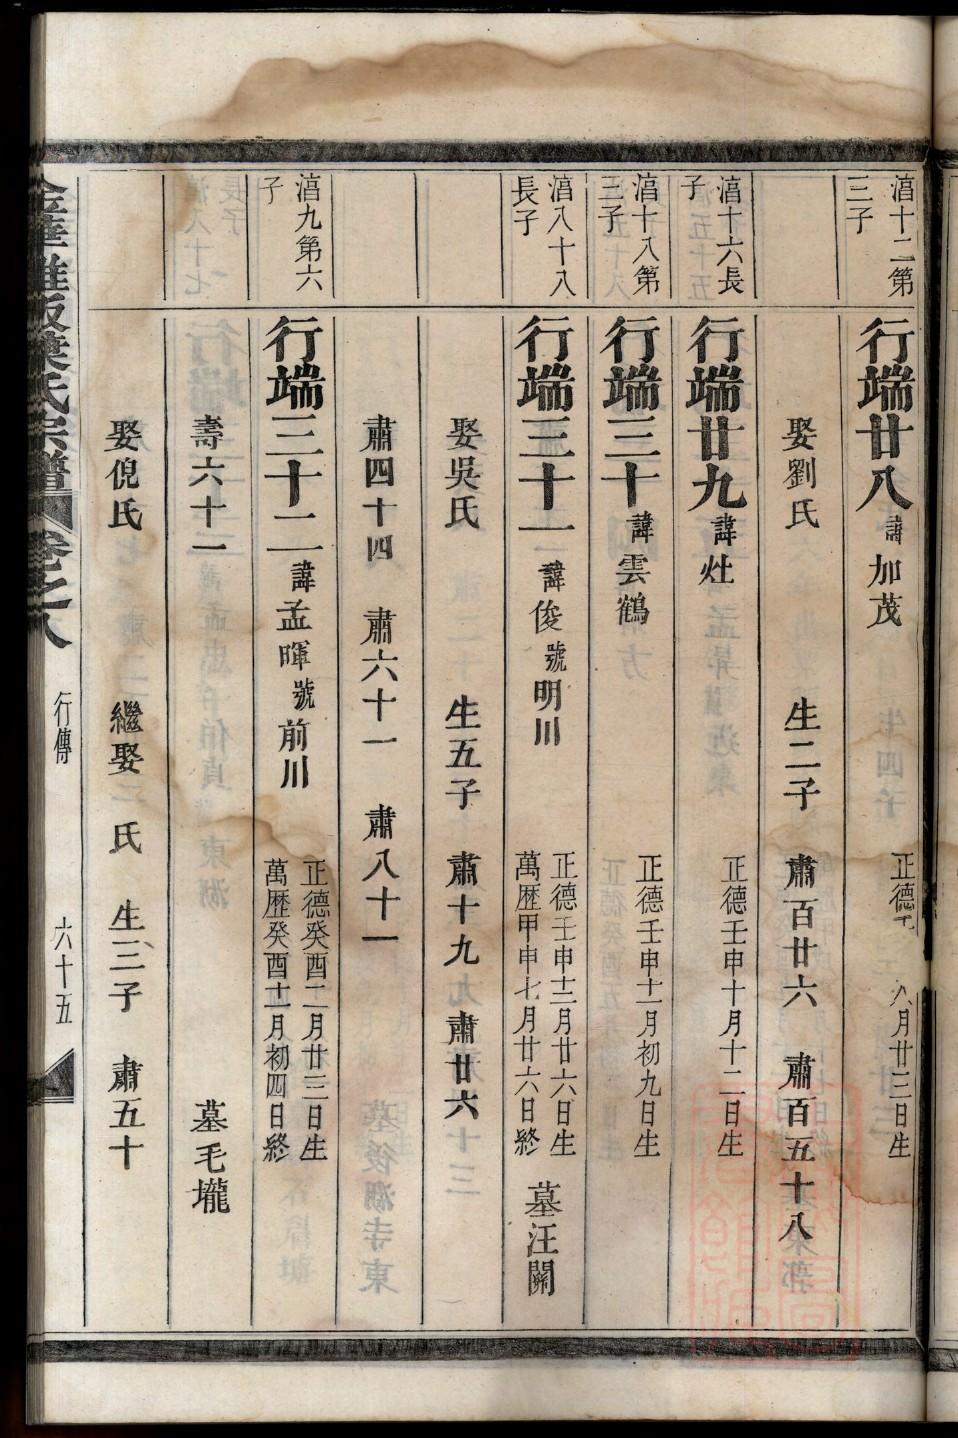 湻十二第
三子
行端廿八 諱 加茂
正德
八月廿三日生
娶劉氏 生二子 肅百廿六 肅百五十八
湻十六長
子
行端廿九 諱 灶
正德壬申十月十二日生
湻十八第
三子
行端三十 諱 雲鶴
正德壬申十一月初九日生
湻八十八
長子
行端三十一 諱 俊 號 明川
正德壬申十二月廿六日生
萬歷甲申七月廿六日終
墓汪關
娶吳氏 生五子 肅十九 肅廿六
肅四十四 肅六十一 肅八十一
湻九第六
子
行端三十二 諱 孟暉 號 前川
正德癸酉二月廿三日生
萬歷癸酉十一月初四日終
壽六十一 墓毛壠
娶倪氏 繼娶 氏 生三子 肅五十
葉氏宗譜 卷之八 行傳 六十五